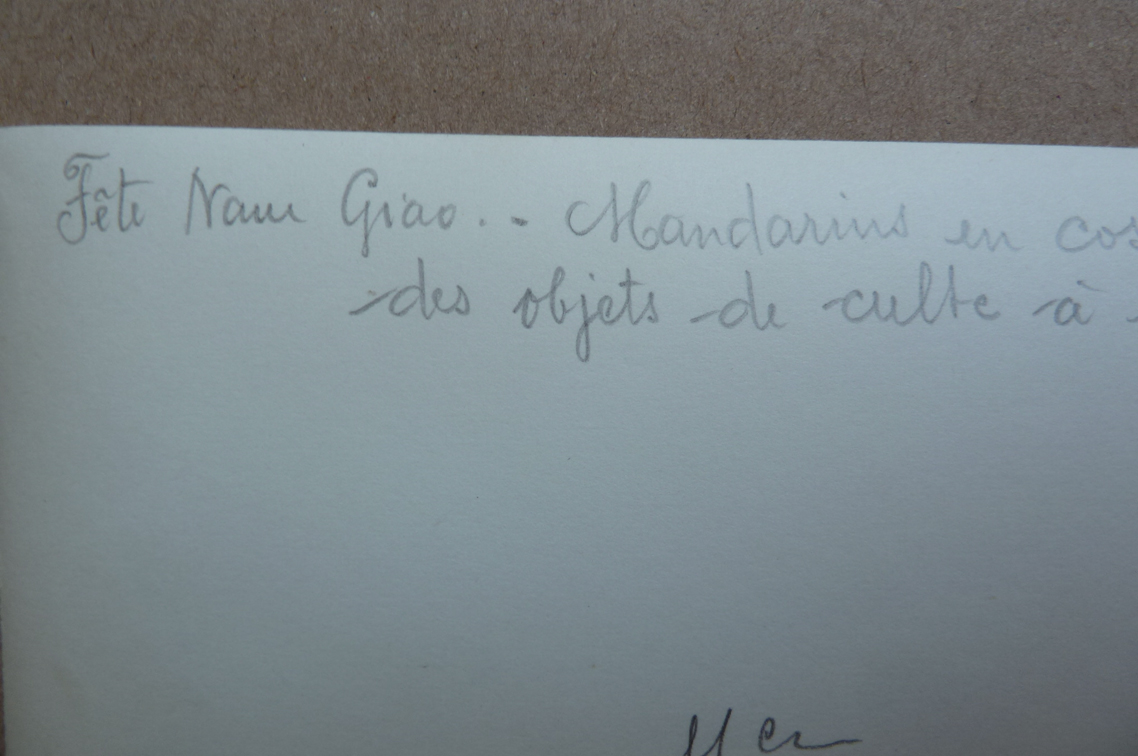 Fête Nam Giao. - Mandarins en cos
des objets de culte à